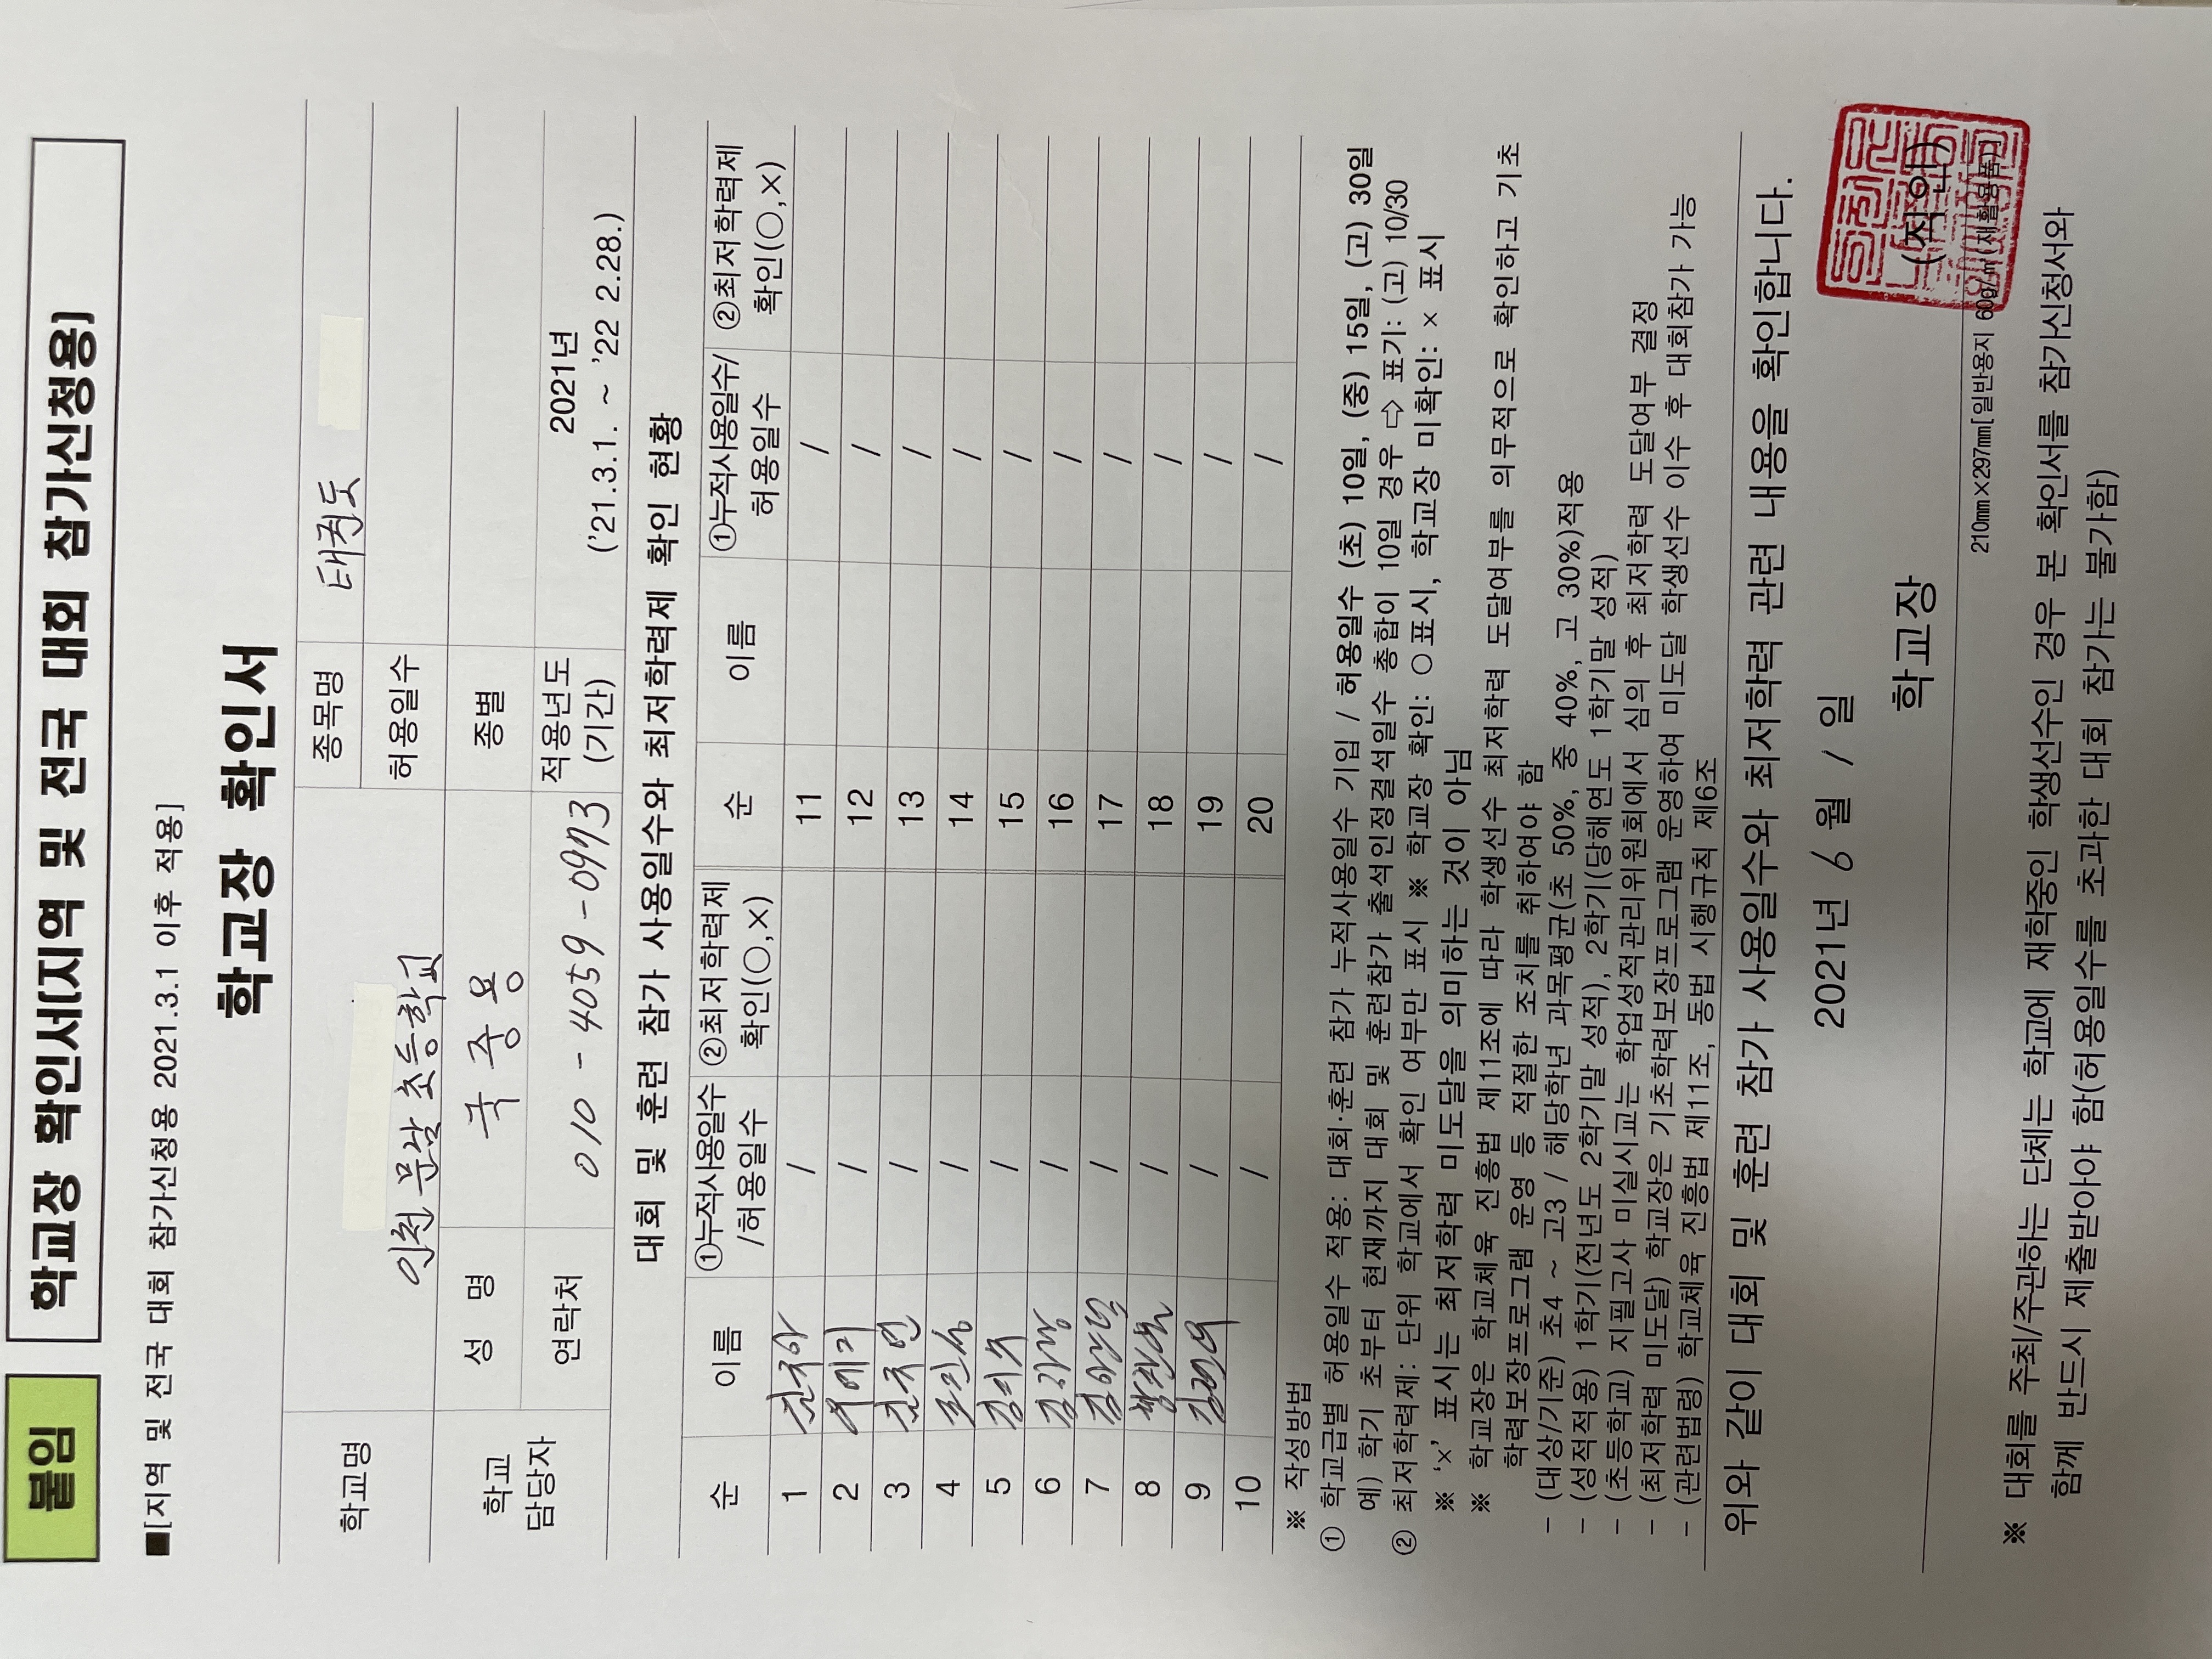 붙임
학교장 확인서[지역 및 전국 대회 참가신청용]
■[지역 및 전국 대회 참가신청용 2021.3.1 이후 적용]
학교장 확인서
학교명 인천문남초등학교 종목명 태권도
허용일수
학교 담당자 성 명 국중용 종별
연락처 010-4059-0973 적용년도 (기간) 2021년 ('21.3.1. ~ '22 2.28.)
대회 및 훈련 참가 사용일수와 최저학력제 확인 현황
순 이름 ①누적사용일수 /허용일수 ②최저학력제 확인(○,×) 순 이름 ①누적사용일수/ 허용일수 ②최저학력제 확인(○,×)
1 / 11 /
2 / 12 /
3 / 13 /
4 / 14 /
5 / 15 /
6 / 16 /
7 / 17 /
8 / 18 /
9 / 19 /
10 / 20 /
※ 작성방법
① 학교급별 허용일수 적용: 대회·훈련 참가 누적사용일수 기입 / 허용일수 (초) 10일, (중) 15일, (고) 30일
예) 학기 초부터 현재까지 대회 및 훈련참가 출석인정결석일수 총합이 10일 경우 ⇨ 표기: (고) 10/30
② 최저학력제: 단위 학교에서 확인 여부만 표시 ※ 학교장 확인: ○표시, 학교장 미확인: × 표시
※ '×' 표시는 최저학력 미도달을 의미하는 것이 아님
※ 학교장은 학교체육 진흥법 제11조에 따라 학생선수 최저학력 도달여부를 의무적으로 확인하고 기초
학력보장프로그램 운영 등 적절한 조치를 취하여야 함
- (대상/기준) 초4 ~ 고3 / 해당학년 과목평균(초 50%, 중 40%, 고 30%)적용
- (성적적용) 1학기(전년도 2학기말 성적), 2학기(당해연도 1학기말 성적)
- (초등학교) 지필고사 미실시교는 학업성적관리위원회에서 심의 후 최저학력 도달여부 결정
- (최저학력 미도달) 학교장은 기초학력보장프로그램 운영하여 미도달 학생선수 이수 후 대회참가 가능
- (관련법령) 학교체육 진흥법 제11조, 동법 시행규칙 제6조
위와 같이 대회 및 훈련 참가 사용일수와 최저학력 관련 내용을 확인합니다.
2021년 6월 1일
학교장 (직인)
210mm×297mm[일반용지 60g/㎡(재활용품)]
※ 대회를 주최/주관하는 단체는 학교에 재학중인 학생선수인 경우 본 확인서를 참가신청서와
함께 반드시 제출받아야 함(허용일수를 초과한 대회 참가는 불가함)